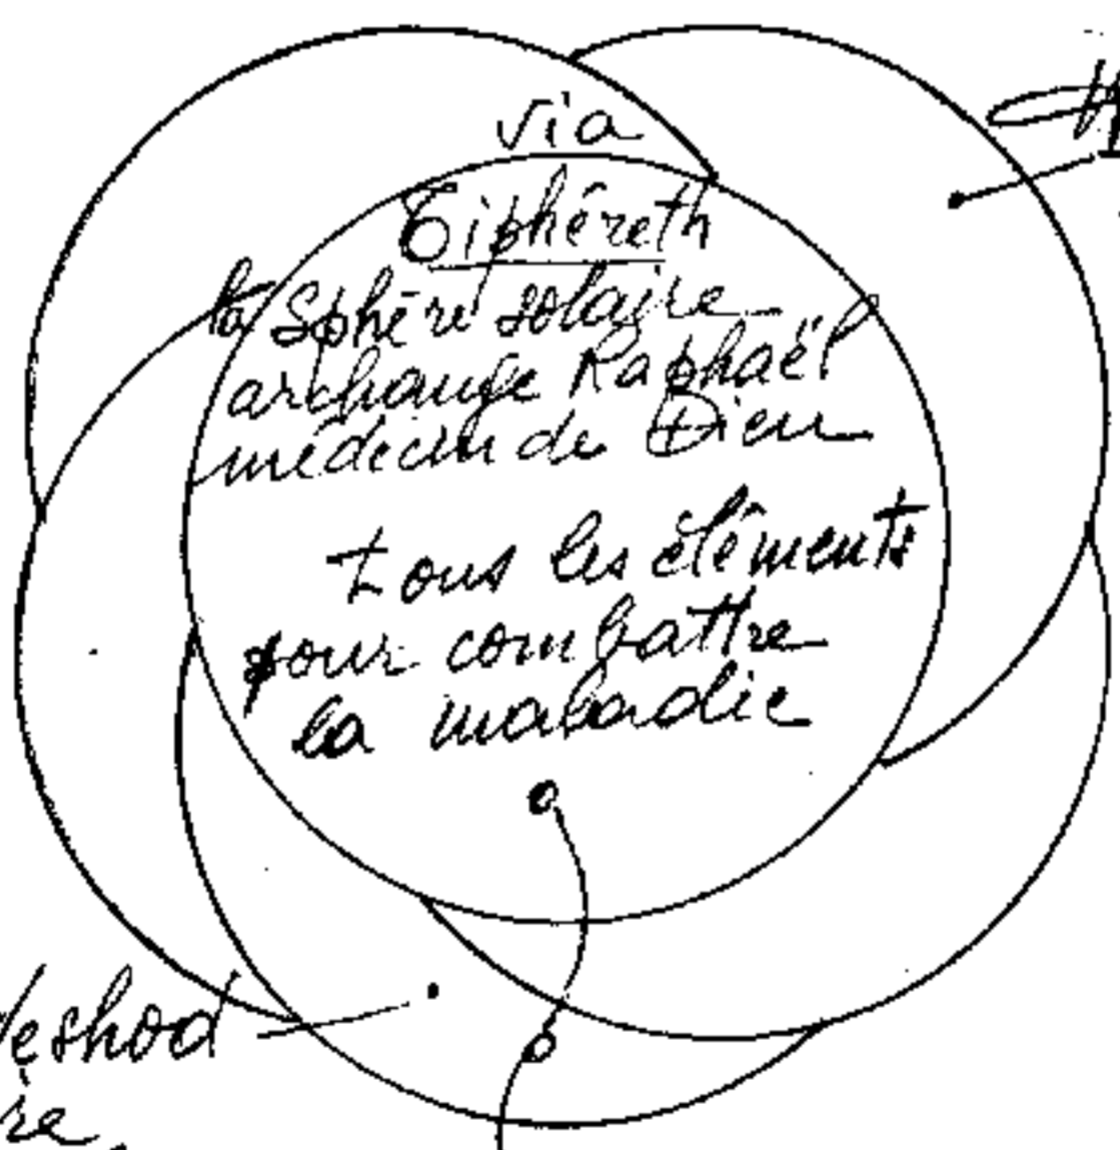 via
Tiphéreth
la Sphère solaire
archange Raphaël
médecin de Dieu
tous les éléments
pour combattre
la maladie